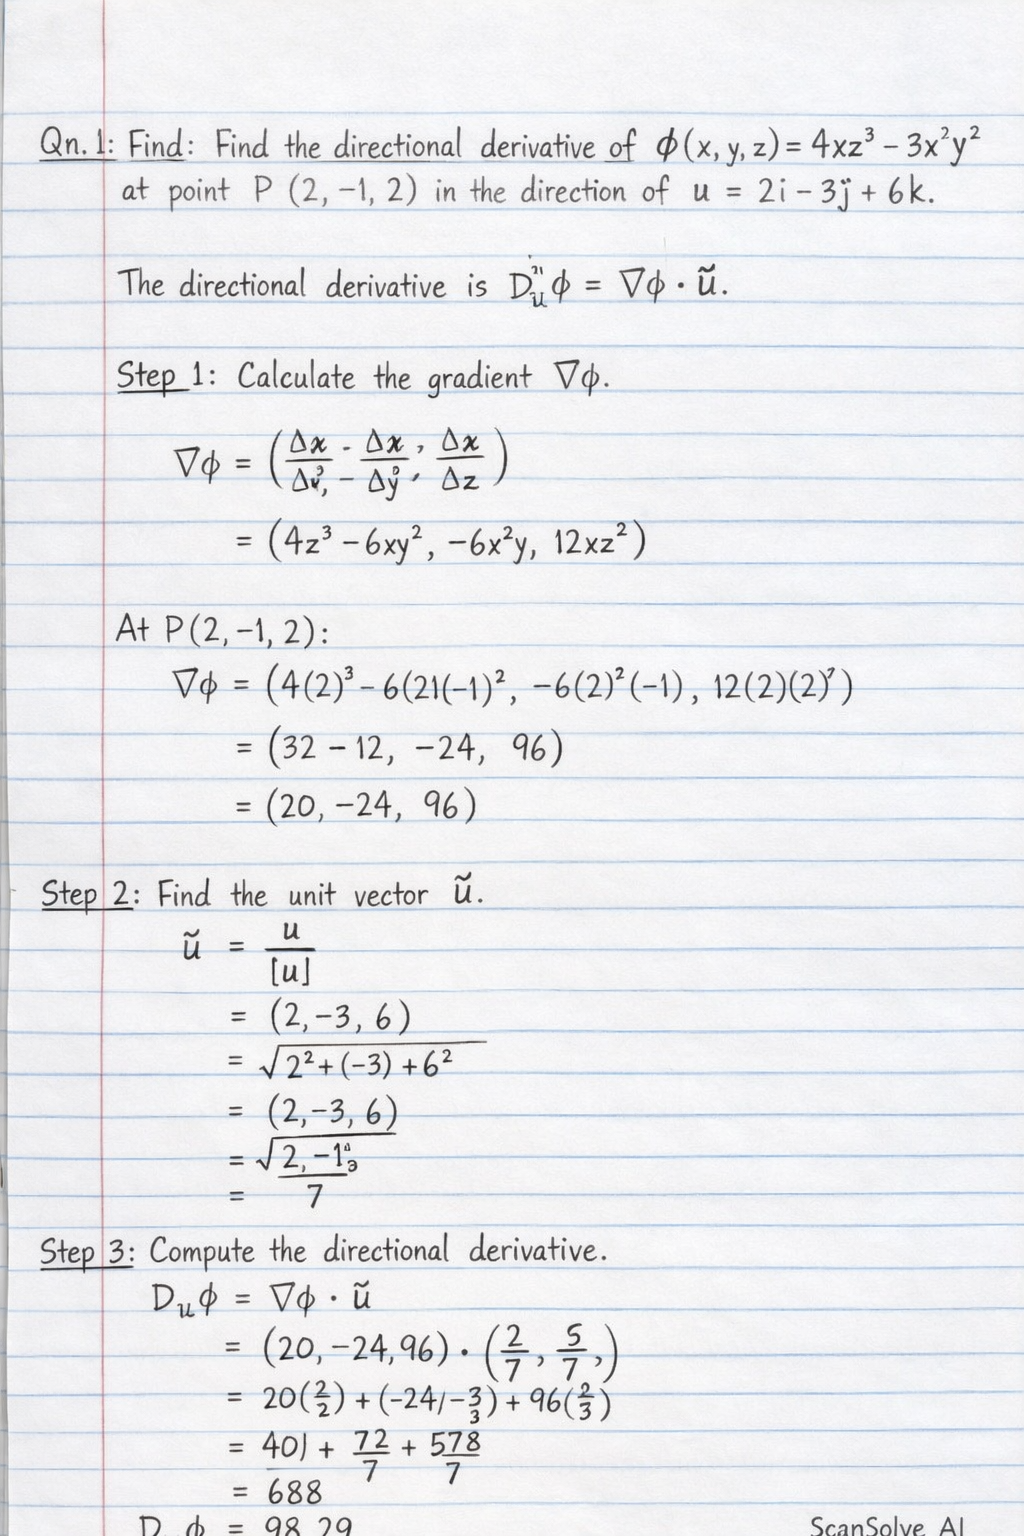 Qn. 1: Find: Find the directional derivative of ϕ(x, y, z) = 4xz³ − 3x²y²
at point P (2, −1, 2) in the direction of u = 2i − 3j + 6k.
The directional derivative is D_u ϕ = ∇ϕ · ũ.
Step 1: Calculate the gradient ∇ϕ.
∇ϕ = (Δx/Δ - Δx/Δy, Δx/Δz)
= (4z³ − 6xy², −6x²y, 12xz²)
At P(2, −1, 2):
∇ϕ = (4(2)³ − 6(21(−1)², −6(2)²(−1), 12(2)(2)⁷)
= (32 − 12, −24, 96)
= (20, −24, 96)
Step 2: Find the unit vector ũ.
ũ = u/[u]
= (2, −3, 6)
= √2² + (−3) + 6²
= (2, −3, 6)
= √2, −1
= 7
Step 3: Compute the directional derivative.
D_u ϕ = ∇ϕ · ũ
= (20, −24, 96) · (2/7, 5/7,)
= 20(2/2) + (−24/−3/3) + 96(2/3)
= 40) + 72/7 + 578/7
= 688
D ϕ = 98.29
ScanSolve AI